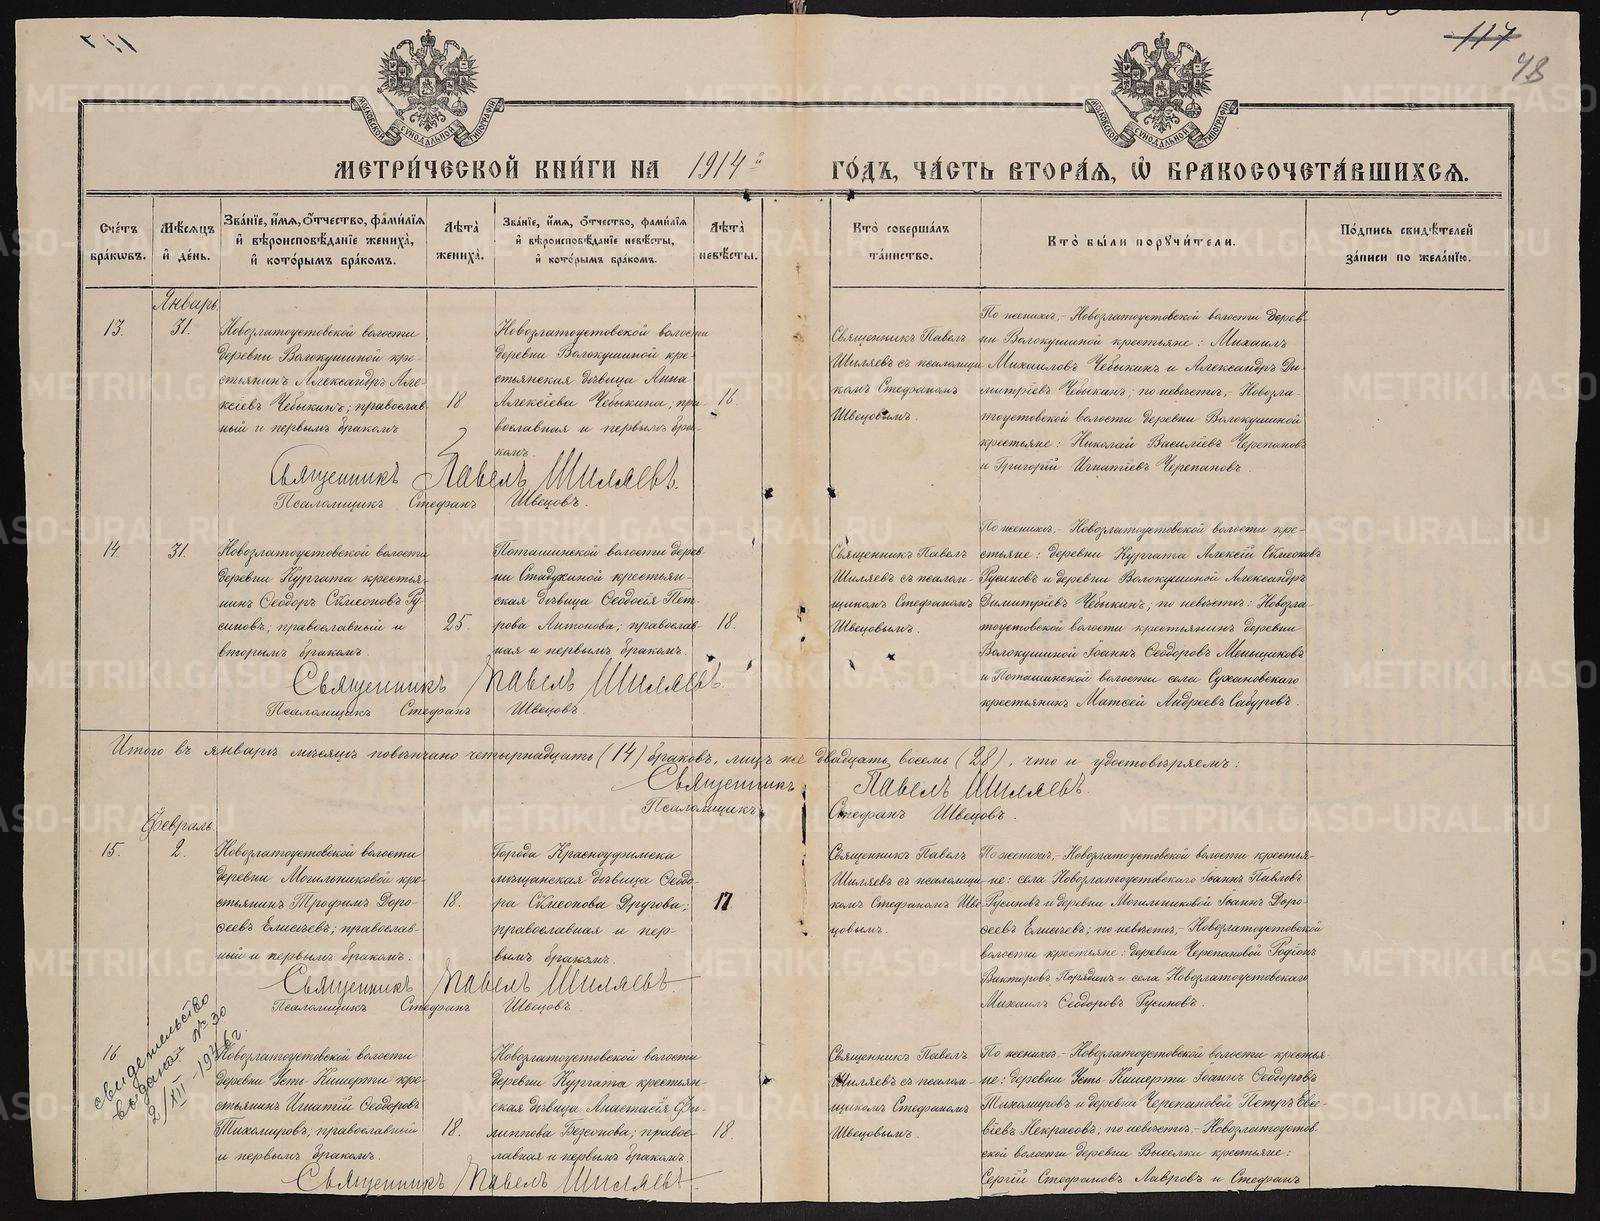 117
48
МОСКОВСКОЙ СѴНОДАЛЬНОЙ ТИПОГРАФІИ
МОСКОВСКОЙ СѴНОДАЛЬНОЙ ТИПОГРАФІИ
МЕТРИ́ЧЕСКОЙ КНИ́ГИ НА 1914й ГО́ДЪ, ЧА́СТЬ ВТОРА́Я, Ѡ БРАКОСОЧЕТА́ВШИХСЯ.
Сче́тъ
бра́кѡвъ.
Мѣ́сяцъ
и҆ де́нь.
Зва́нїе, и҆́мя, ѻ҆́тчество, фами́лїя
и҆ вѣроисповѣ́данїе жениха̀,
и҆ кото́рымъ бра́комъ.
Лѣта̀
жениха̀.
Зва́нїе, и҆́мя, ѻ҆́тчество, фами́лїя
и҆ вѣроисповѣ́данїе невѣ́сты,
и҆ кото́рымъ бра́комъ.
Лѣта̀
невѣ́сты.
Кто̀ соверша́лъ
та́инство.
Кто̀ бы́ли порꙋчи́тели.
По́дпись свидѣ́телей
за́писи по жела́нїю.
Январь.
13.
31.
Новозлатоустовской волости
деревни Волокушиной кре-
стьянинъ Александръ Але-
ксіевъ Чебыкинъ; православ-
ный и первымъ бракомъ
18.
Новозлатоустовской волости
деревни Волокушиной кре-
стьянская дѣвица Анна
Алексіева Чебыкина, пра-
вославная и первымъ бра-
комъ.
16.
Священникъ Павелъ
Шиляевъ съ псаломщи-
комъ Стефаномъ
Швецовымъ.
По женихѣ,- Новозлатоустовской волости дерев-
ни Волокушиной крестьяне: Михаилъ
Михаиловъ Чебыкинъ и Александръ Ди-
митріевъ Чебыкинъ; по невѣстѣ,- Новозла-
тоустовской волости деревни Волокушиной
крестьяне: Николай Василіевъ Черепановъ
и Григорій Игнатіевъ Черепановъ.
Священникъ Павелъ Шиляевъ.
Псаломщикъ Стефанъ Швецовъ.
14
31.
Новозлатоустовской волости
деревни Кургата крестья-
нинъ Ѳеодоръ Сѵмеоновъ Ру-
синовъ; православный и
вторымъ бракомъ.
25.
Поташинской волости дерев-
ни Стадухиной крестьян-
ская дѣвица Ѳеодосія Пет-
рова Антонова; православ-
ная и первымъ бракомъ.
18.
Священникъ Павелъ
Шиляевъ съ псалом-
щикомъ Стефаномъ
Швецовымъ.
По женихѣ,- Новозлатоустовской волости кре-
стьяне: деревни Кургата Алексій Сѵмеоновъ
Русиновъ и деревни Волокушиной Александръ
Димитріевъ Чебыкинъ; по невѣстѣ: Новозла-
тоустовской волости крестьянинъ деревни
Волокушиной Іоаннъ Ѳеодоровъ Меньщиковъ
и Поташинской волости села Сухановскаго
крестьянинъ Матѳей Андреевъ Сабуровъ.
Священникъ Павелъ Шиляевъ.
Псаломщикъ Стефанъ Швецовъ.
Итого въ январѣ мѣсяцѣ повѣнчано четырнадцать (14) браковъ, лицъ же двадцать восемь (28), что и удостовѣряемъ:
Священникъ Павелъ Шиляевъ.
Псаломщикъ Стефанъ Швецовъ.
Февраль.
15.
2.
Новозлатоустовской волости
деревни Могильниковой кре-
стьянинъ Трофимъ Доро-
ѳеевъ Елисѣевъ; православ-
ный и первымъ бракомъ.
18.
Города Красноуфимска
мѣщанская дѣвица Ѳеодо-
ра Сѵмеонова Другова;
православная и пер-
вымъ бракомъ.
17
Священникъ Павелъ
Шиляевъ съ псаломщи-
комъ Стефаномъ Шве-
цовымъ.
По женихѣ,- Новозлатоустовской волости крестья-
не: села Новозлатоустовскаго Іоаннъ Павловъ
Русиновъ и деревни Могильниковой Іоаннъ Доро-
ѳеевъ Елисѣевъ; по невѣстѣ,- Новозлатоустовской
волости крестьяне: деревни Черепановой Родіонъ
Викторовъ Порядинъ и села Новозлатоустовскаго
Михаилъ Ѳеодоровъ Русиновъ.
Священникъ Павелъ Шиляевъ
Псаломщикъ Стефанъ Швецовъ
свидетельство
выдано № 30
2/XII-1946г.
16
Новозлатоустовской волости
деревни Усть-Кишерти кре-
стьянинъ Игнатій Ѳеодоровъ
Тихомировъ; православный
и первымъ бракомъ.
18.
Новозлатоустовской волости
деревни Кургата крестьян-
ская дѣвица Анастасія Фи-
липпова Безсонова; право-
славная и первымъ бракомъ.
18.
Священникъ Павелъ
Шиляевъ съ псалом-
щикомъ Стефаномъ
Швецовымъ.
По женихѣ,- Новозлатоустовской волости крестья-
не: деревни Усть-Кишерти Іоаннъ Ѳеодоровъ
Тихомировъ и деревни Черепановой Петръ Евсе-
віевъ Некрасовъ; по невѣстѣ,- Новозлатоустов-
ской волости деревни Выселки крестьяне:
Сергій Стефановъ Лавровъ и Стефанъ
Священникъ Павелъ Шиляевъ.
METRIKI.GASO-URAL.RU